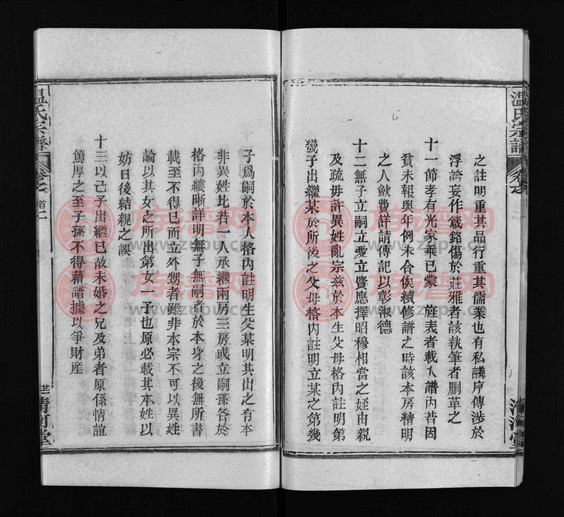 溫氏宗譜
之註明重其品行重其儒業也有私議序傳涉於
浮誇妄作箴銘傷於莊雅者該執筆者刪革之
十一節孝有光家乘已蒙 旌表者載入譜內昔因
貧未報與年例未合俟續修譜之時該本房精明
之人斂費詳請傳記以彰淑德
十二無子立嗣立愛立賢應擇昭穆相當之姪由親
及疏毋許異姓亂宗茲於本生父母格內註明第
幾子出繼某於所後之父母格內註明立某之第幾
清河堂
溫氏宗譜
卷之首一
子爲嗣於本人格內註明生父某明其出之有本
非異姓比若一人承繼兩房三房或立嗣孫各於
格內縷晰詳明無子無嗣者於本身之後無所書
載至不得已而立外甥者雖非本宗不可以異姓
論以其女之所出第女一子也原必載其本姓以
妨日後結親之誤
十三以己子出繼已故未婚之兄及弟者原係情誼
篤厚之至子孫不得藉譜據以爭財產
清河堂